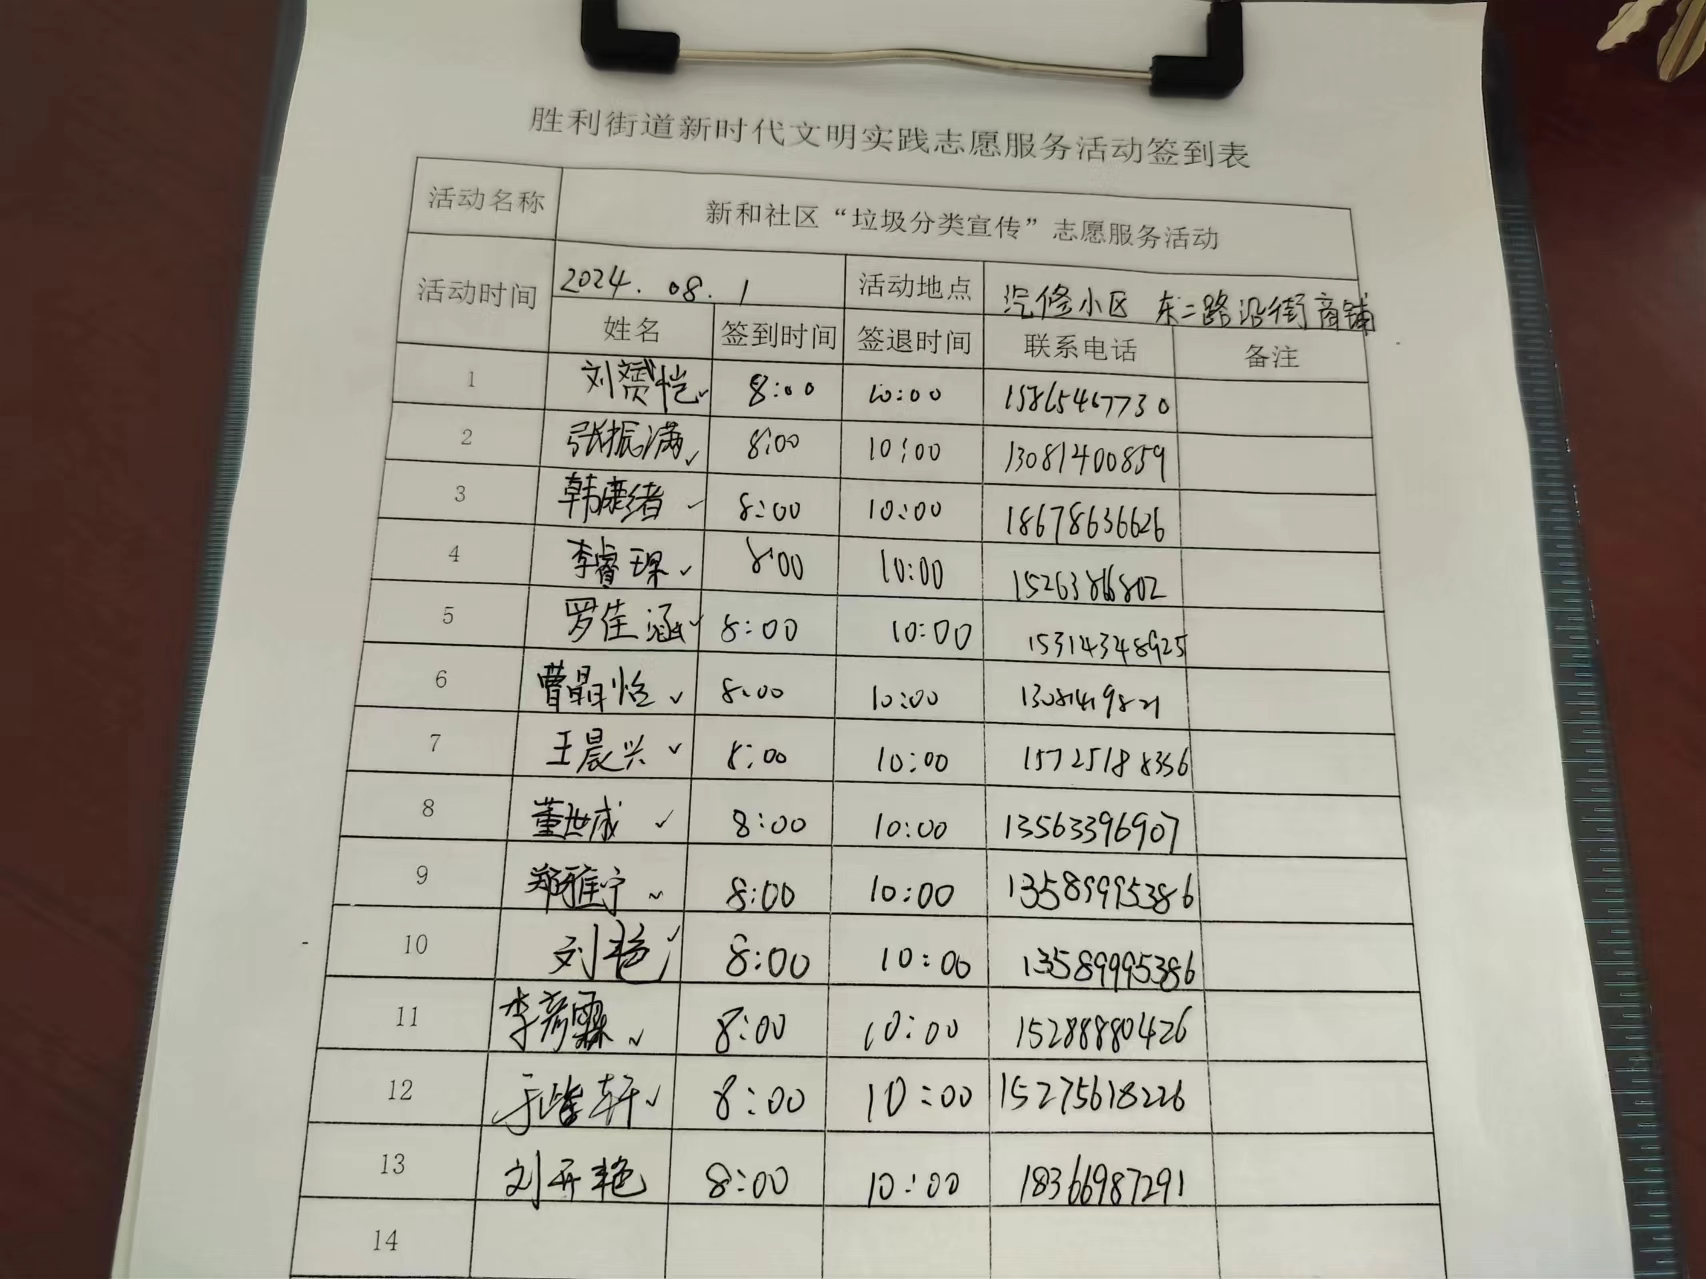 胜利街道新时代文明实践志愿服务活动签到表
活动名称 新和社区“垃圾分类宣传”志愿服务活动
活动时间 2024.08.1 活动地点 汽修小区 东二路沿街商铺
姓名 签到时间 签退时间 联系电话 备注
1 刘赟恺 8:00 10:00 15865467730
2 张振满 8:00 10:00 13081400859
3 韩康绪 8:00 10:00 18678636626
4 李睿琛 8:00 10:00
5 罗佳涵 8:00 10:00 15314348925
6 曹晶怡 8:00 10:00
7 王晨兴 8:00 10:00 15725188356
8 董世成 8:00 10:00 13563396907
9 郑雅宁 8:00 10:00 13589995386
10 刘艳 8:00 10:00 13589995386
11 李彦霖 8:00 10:00 15288880426
12 8:00 10:00 15275618226
13 刘开艳 8:00 10:00 18366987291
14